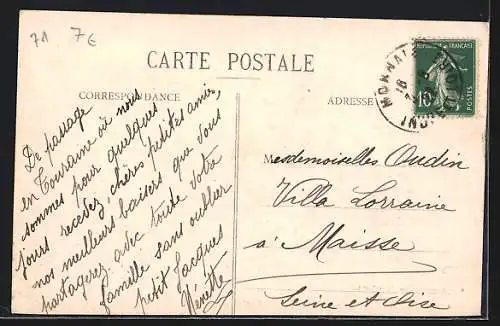 7A 7E
CARTE POSTALE
CORRESPONDANCE
ADRESSE
REPUBLIQUE FRANÇAISE
10
POSTES
MONNAIE
De passage
en Touraine où nous
sommes pour quelques
jours recevez, chères petites amies,
nos meilleurs baisers que vous
partagerez avec toute votre
famille sans oublier
petit Jacques
Mesdemoiselles Oudin
Villa Lorraine
à Maisse
Seine et Oise